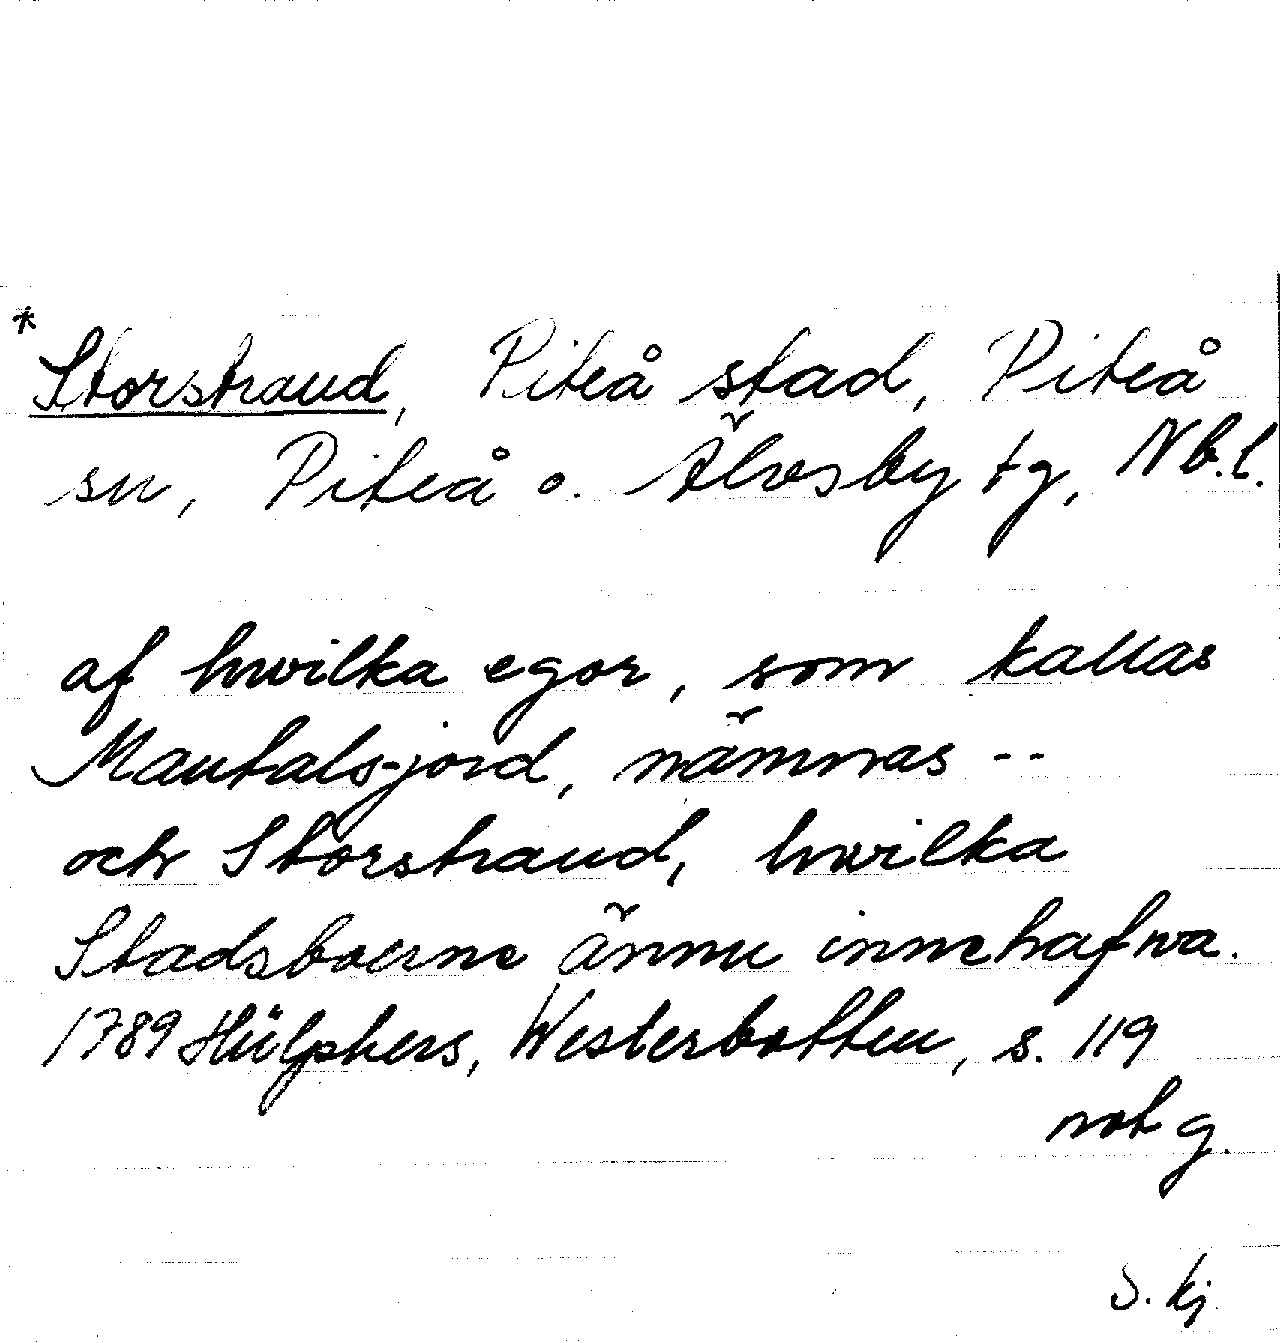 * Storstrand, Piteå stad, Piteå
sn, Piteå o. Älvsby tg, Nb.l.
af hwilka egor, som kallas
Mantals-jord, nämnas --
och Storstrand, hwilka
Stadsboerne ännu innehafwa.
1789 Hülphers, Westerbotten, s. 119
not g.
S. kj